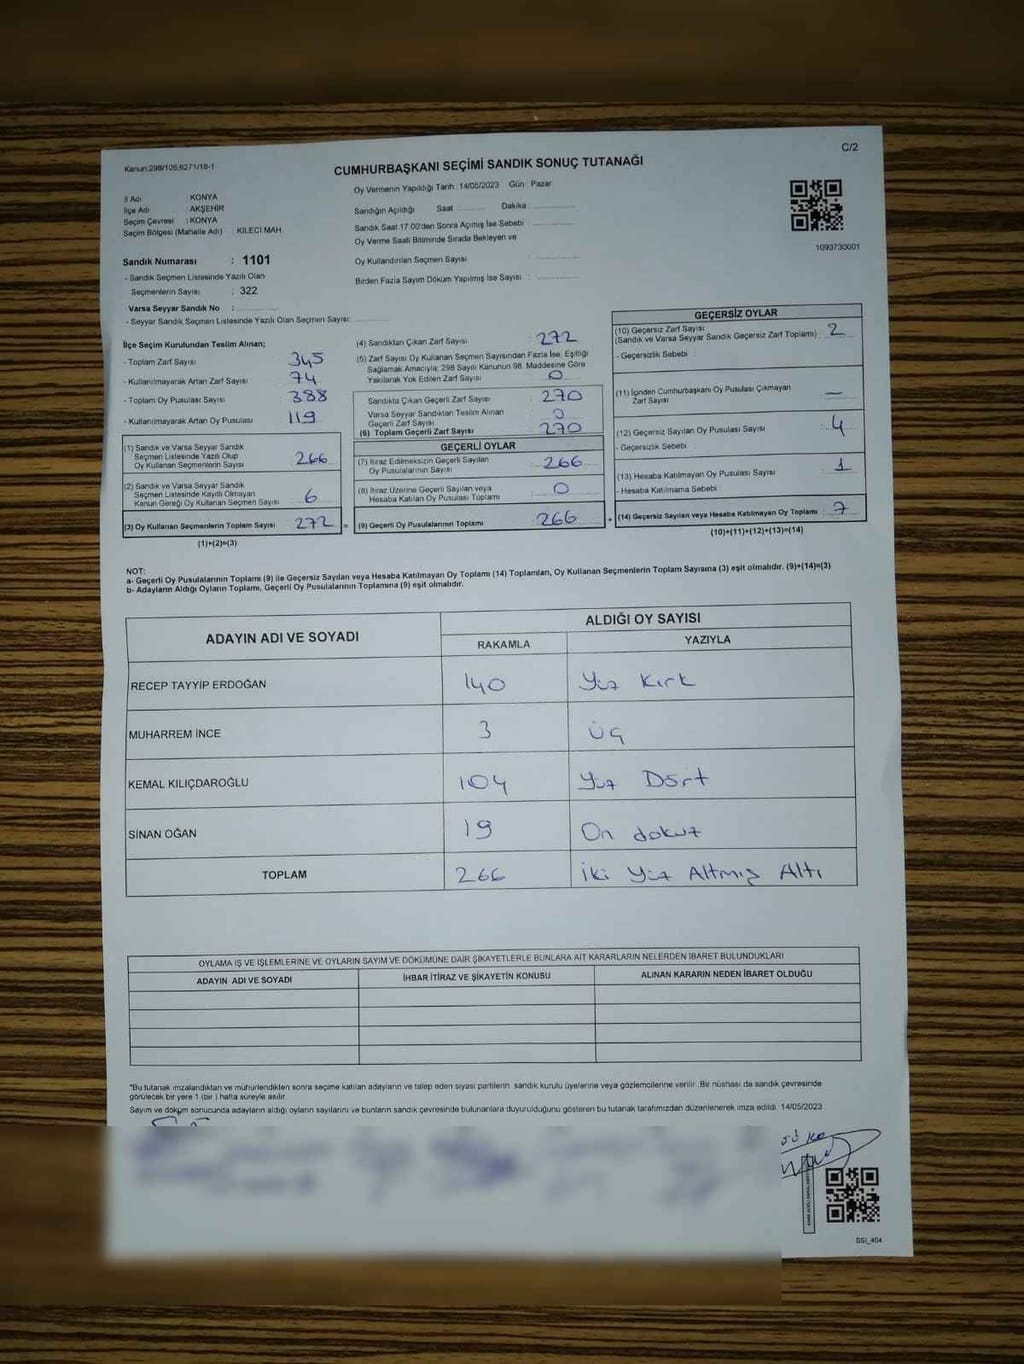 Kanun:298/105,6271/18-1
CUMHURBAŞKANI SEÇİMİ SANDIK SONUÇ TUTANAĞI
C/2
Oy Vermenin Yapıldığı Tarih : 14/05/2023 Gün : Pazar
İl Adı : KONYA
İlçe Adı : AKŞEHİR
Seçim Çevresi : KONYA
Seçim Bölgesi (Mahalle Adı) : KİLECİ MAH.
Sandığın Açıldığı Saat Dakika
Sandık Saat 17.00'den Sonra Açılmış İse Sebebi
Oy Verme Saati Bitiminde Sırada Bekleyen ve
Oy Kullandırılan Seçmen Sayısı
Birden Fazla Sayım Döküm Yapılmış İse Sayısı :
1093730001
Sandık Numarası : 1101
- Sandık Seçmen Listesinde Yazılı Olan
Seçmenlerin Sayısı : 322
Varsa Seyyar Sandık No :
- Seyyar Sandık Seçmen Listesinde Yazılı Olan Seçmen Sayısı:
İlçe Seçim Kurulundan Teslim Alınan;
- Toplam Zarf Sayısı 345
- Kullanılmayarak Artan Zarf Sayısı 74
- Toplam Oy Pusulası Sayısı 388
- Kullanılmayarak Artan Oy Pusulası 119
(1) Sandık ve Varsa Seyyar Sandık
Seçmen Listesinde Yazılı Olup
Oy Kullanan Seçmenlerin Sayısı 266
(2) Sandık ve Varsa Seyyar Sandık
Seçmen Listesinde Kayıtlı Olmayan
Kanun Gereği Oy Kullanan Seçmen Sayısı 6
(3) Oy Kullanan Seçmenlerin Toplam Sayısı 272 =
(1)+(2)=(3)
(4) Sandıktan Çıkan Zarf Sayısı 272
(5) Zarf Sayısı Oy Kullanan Seçmen Sayısından Fazla İse, Eşitliği
Sağlamak Amacıyla; 298 Sayılı Kanunun 98. Maddesine Göre
Yakılarak Yok Edilen Zarf Sayısı 0
Sandıkta Çıkan Geçerli Zarf Sayısı 270
Varsa Seyyar Sandıktan Teslim Alınan
Geçerli Zarf Sayısı 0
(6) Toplam Geçerli Zarf Sayısı 270
GEÇERLİ OYLAR
(7) İtiraz Edilmeksizin Geçerli Sayılan
Oy Pusulalarının Sayısı 266
(8) İtiraz Üzerine Geçerli Sayılan veya
Hesaba Katılan Oy Pusulası Toplamı 0
(9) Geçerli Oy Pusulalarının Toplamı 266 +
GEÇERSİZ OYLAR
(10) Geçersiz Zarf Sayısı
(Sandık ve Varsa Seyyar Sandık Geçersiz Zarf Toplamı) 2
- Geçersizlik Sebebi
(11) İçinden Cumhurbaşkanı Oy Pusulası Çıkmayan
Zarf Sayısı —
(12) Geçersiz Sayılan Oy Pusulası Sayısı 4
- Geçersizlik Sebebi
(13) Hesaba Katılmayan Oy Pusulası Sayısı 1
- Hesaba Katılmama Sebebi
(14) Geçersiz Sayılan veya Hesaba Katılmayan Oy Toplamı 7
(10)+(11)+(12)+(13)=(14)
NOT:
a- Geçerli Oy Pusulalarının Toplamı (9) ile Geçersiz Sayılan veya Hesaba Katılmayan Oy Toplamı (14) Toplamları, Oy Kullanan Seçmenlerin Toplam Sayısına (3) eşit olmalıdır. (9)+(14)=(3)
b- Adayların Aldığı Oyların Toplamı, Geçerli Oy Pusulalarının Toplamına (9) eşit olmalıdır.
ADAYIN ADI VE SOYADI
ALDIĞI OY SAYISI
RAKAMLA YAZIYLA
RECEP TAYYİP ERDOĞAN 140 Yüz Kırk
MUHARREM İNCE 3 Üç
KEMAL KILIÇDAROĞLU 104 Yüz Dört
SİNAN OĞAN 19 On dokuz
TOPLAM 266 İki Yüz Altmış Altı
OYLAMA İŞ VE İŞLEMLERİNE VE OYLARIN SAYIM VE DÖKÜMÜNE DAİR ŞİKAYETLERLE BUNLARA AİT KARARLARIN NELERDEN İBARET BULUNDUKLARI
ADAYIN ADI VE SOYADI İHBAR İTİRAZ VE ŞİKAYETİN KONUSU ALINAN KARARIN NEDEN İBARET OLDUĞU
*Bu tutanak imzalandıktan ve mühürlendikten sonra seçime katılan adayların ve talep eden siyasi partilerin sandık kurulu üyelerine veya gözlemcilerine verilir. Bir nüshası da sandık çevresinde
görülecek bir yere 1 (bir ) hafta süreyle asılır.
Sayım ve döküm sonucunda adayların aldığı oyların sayılarını ve bunların sandık çevresinde bulunanlara duyurulduğunu gösteren bu tutanak tarafımızdan düzenlenerek imza edildi. 14/05/2023
SSİ_404